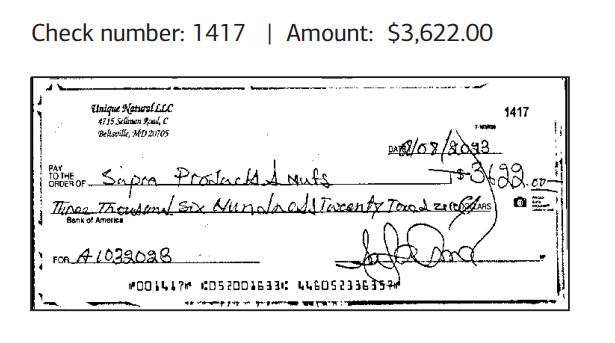 Check number: 1417 | Amount: $3,622.00
Unique Natural LLC
4715 Sellman Road, C
Beltsville, MD 20705
1417
DATE 8/08/2023
PAY
TO THE
ORDER OF Sapra Products & Nuts $3622.00
Three Thousand Six Hundred Twenty Two & zero DOLLARS
Bank of America
FOR A1032028
⑈001417⑈ ⑆052001633⑆ 446052336359⑈